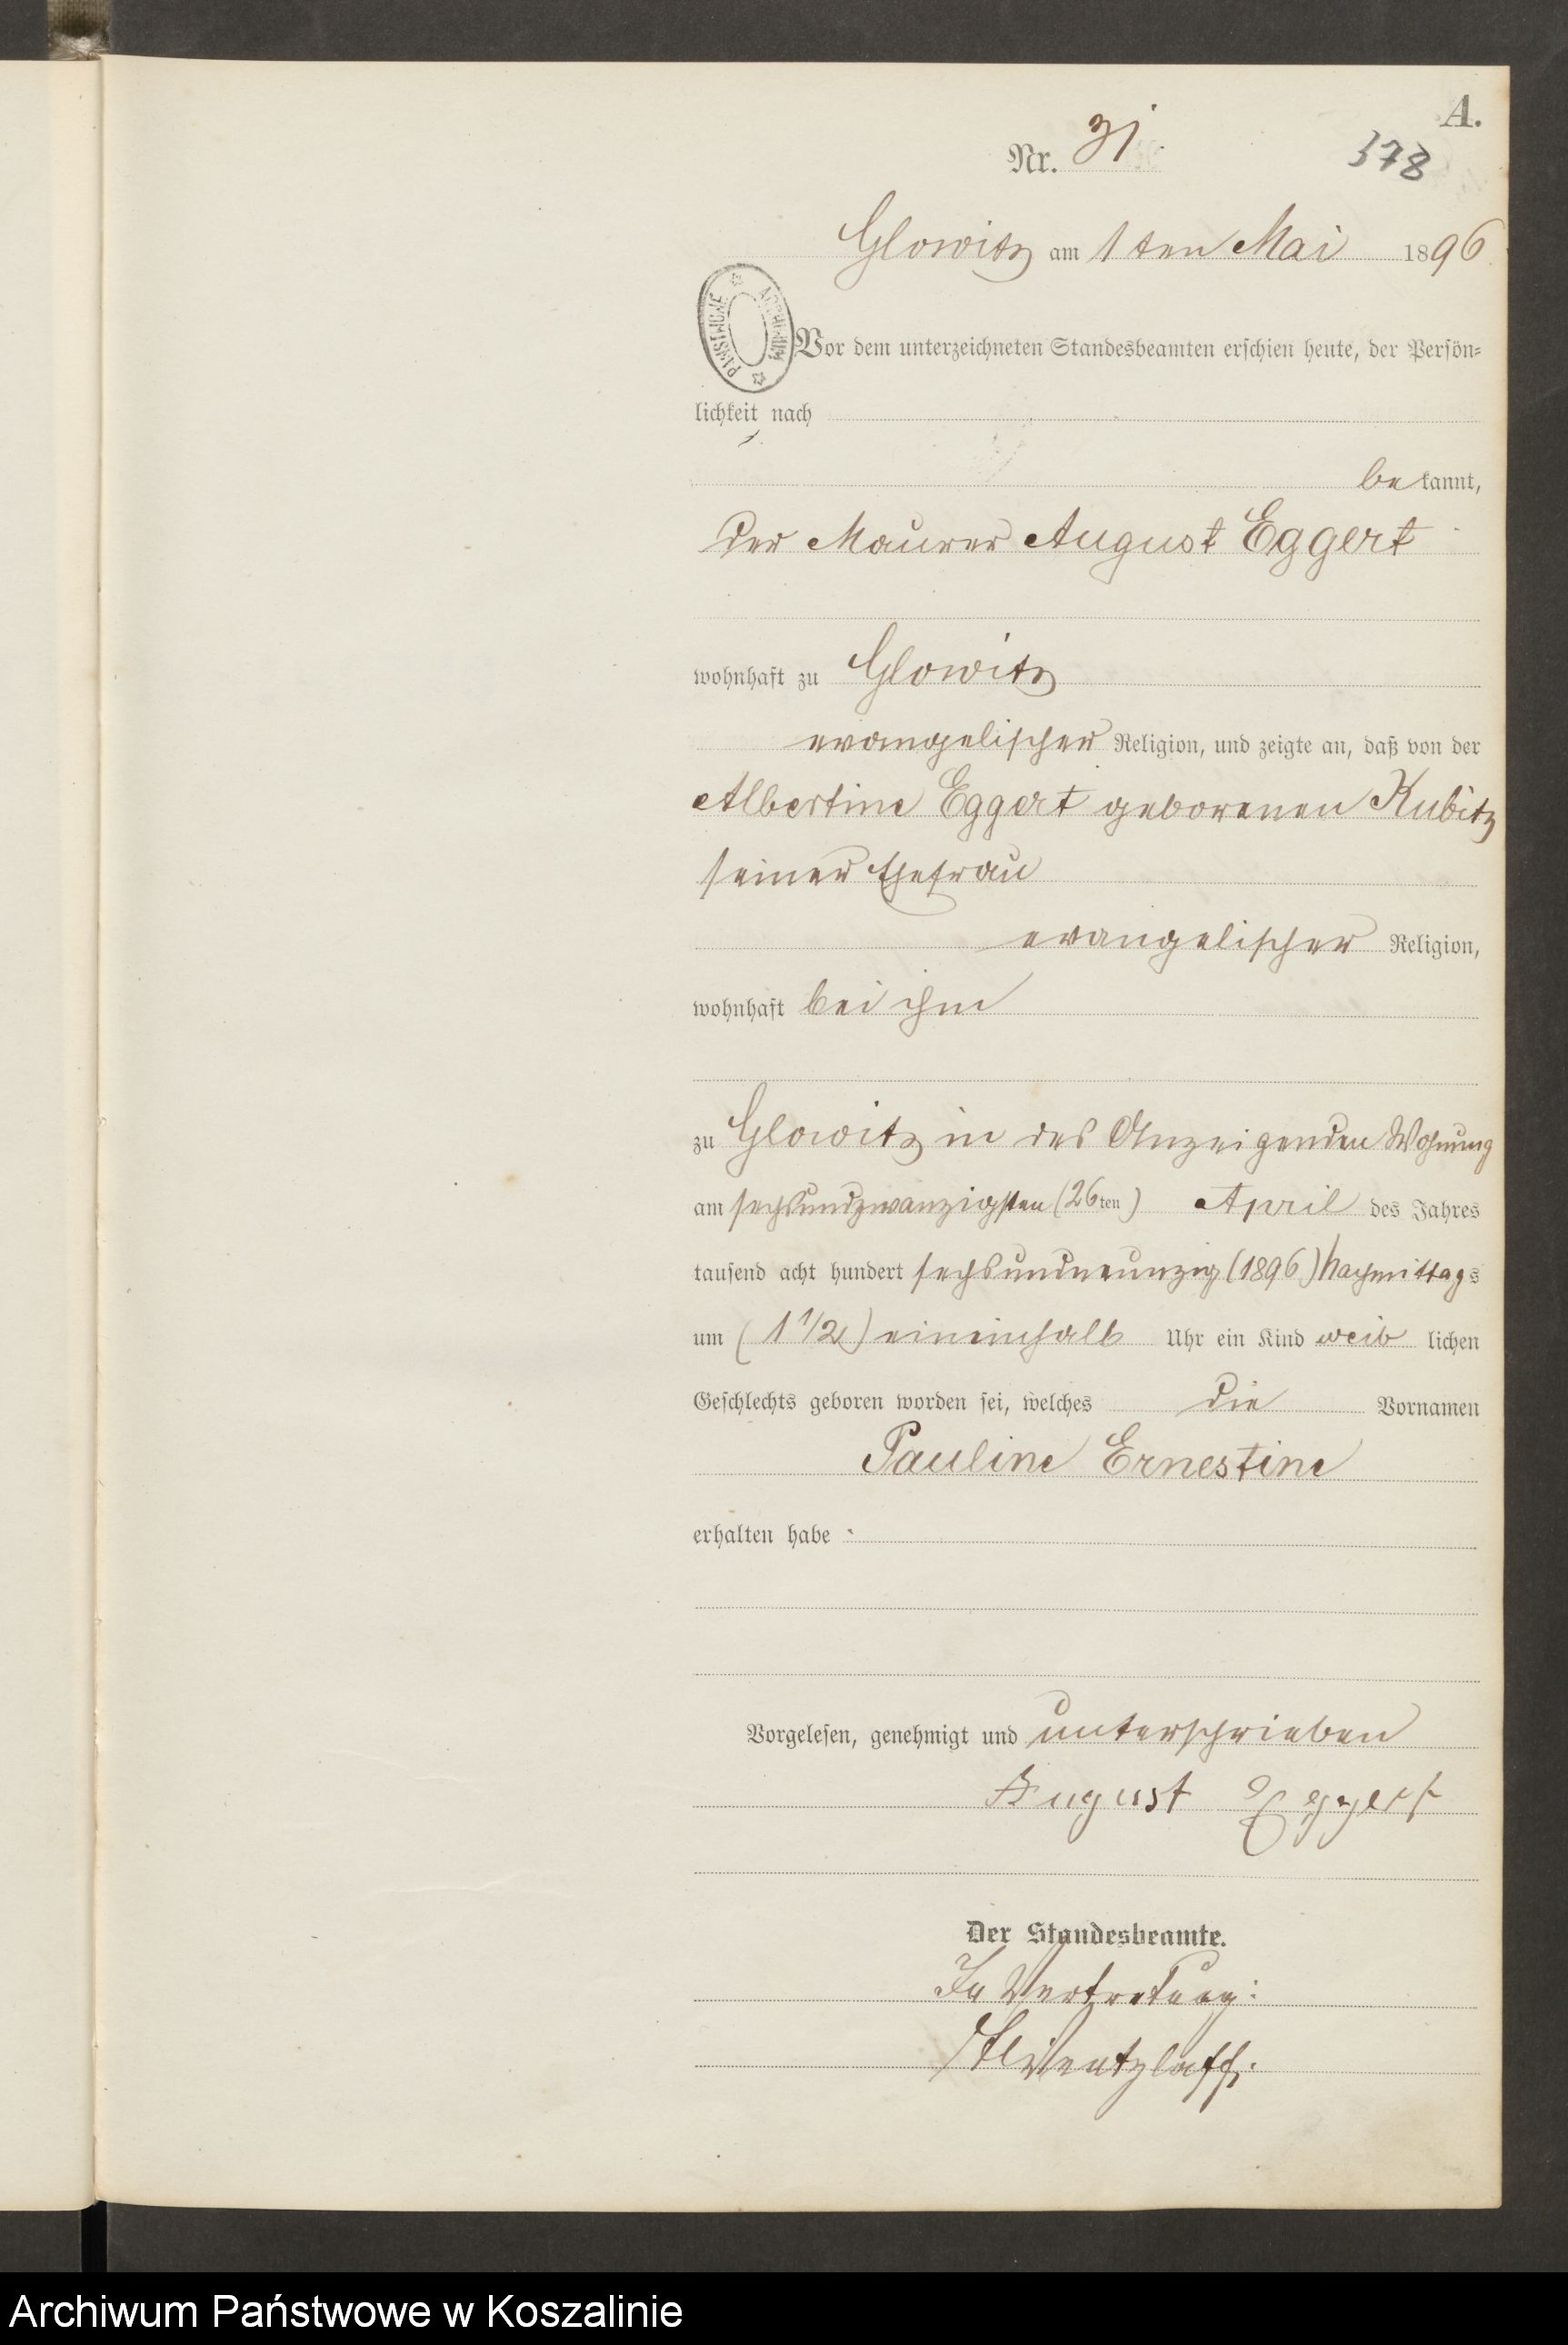 A.
Nr. 31.
378
Glowitz am 1ten Mai 1896.
ARCHIWUM PAŃSTWOWE
Vor dem unterzeichneten Standesbeamten erschien heute, der Persön-
lichkeit nach
bekannt,
der Maurer August Eggert
wohnhaft zu Glowitz
evangelischer Religion, und zeigte an, daß von der
Albertine Eggert geborenen Kubitz
seiner Ehefrau
evangelischer Religion,
wohnhaft bei ihm
zu Glowitz in des Anzeigenden Wohnung
am sechsundzwanzigsten (26ten) April des Jahres
tausend acht hundert sechsundneunzig (1896) Nachmittags
um (1 1/2) eineinhalb Uhr ein Kind weiblichen
Geschlechts geboren worden sei, welches die Vornamen
Pauline Ernestine
erhalten habe.
Vorgelesen, genehmigt und unterschrieben
August Eggert
Der Standesbeamte.
In Vertretung:
Wentzlaff.
Archiwum Państwowe w Koszalinie